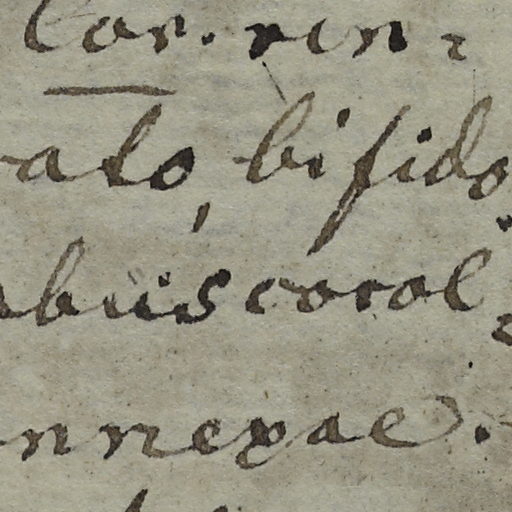 Cor. rin-
ato, bifido
bus corol-
nnexae.